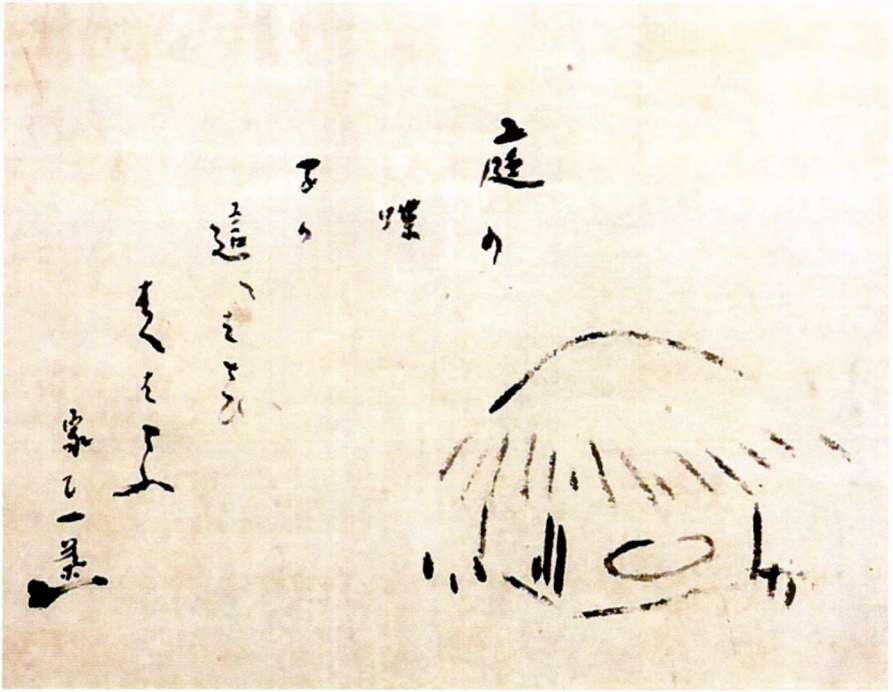 庭の
蝶
子か
這へはとひ
はへはとふ
一茶